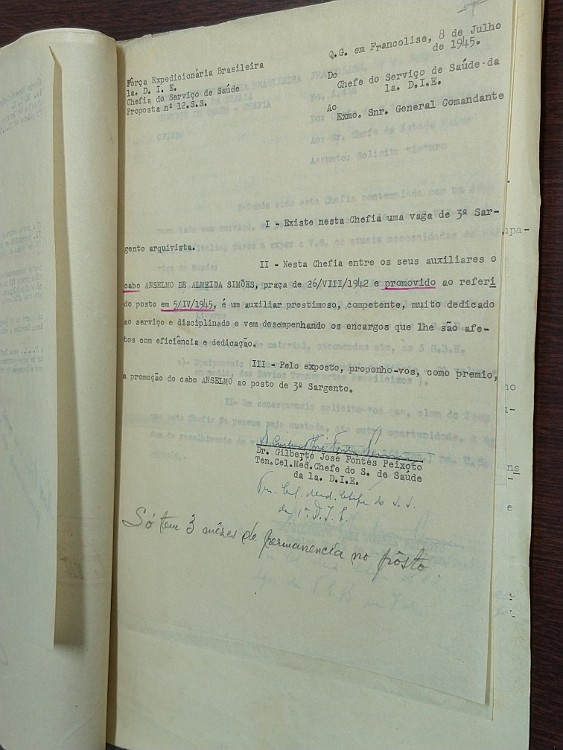 Força Expedicionária Brasileira
1a. D. I. E.
Chefia do Serviço de Saúde
Proposta nº 12.S.S.
Q.G. em Francolise, 8 de Julho
de 1945.
Do
Chefe do Serviço de Saúde da
1a. D.I.E.
Ao
Exmo. Snr. General Comandante
I - Existe nesta Chefia uma vaga de 3º Sar-
gento arquivista.
II - Nesta Chefia entre os seus auxiliares o
cabo ANSELMO DE ALMEIDA SIMÕES, praça de 26/VIII/1942 e promovido ao referi
do posto em 5/IV/1945, é um auxiliar prestimoso, competente, muito dedicado
ao serviço e disciplinado e vem desempenhando os encargos que lhe são afe-
tos com eficiência e dedicação.
III - Pelo exposto, proponho-vos, como premio,
a promoção do cabo ANSELMO ao posto de 3º Sargento.
Dr. Gilberto José Fontes Peixoto
Ten.Cel.Med.Chefe do S. de Saude
da 1a. D.I.E.
Ten. Cel. med. Chefe do S.S.
da 1ª D.I.E.
Só tem 3 mêses de permanencia no pôsto.